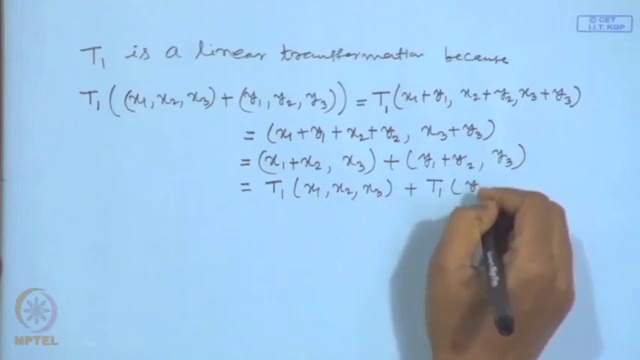 © CET
I.I.T. KGP
T₁ is a linear transformation because
T₁((x₁, x₂, x₃) + (y₁, y₂, y₃)) = T₁(x₁+y₁, x₂+y₂, x₃+y₃)
= (x₁+y₁+x₂+y₂, x₃+y₃)
= (x₁+x₂, x₃) + (y₁+y₂, y₃)
= T₁(x₁, x₂, x₃) + T₁(y
NPTEL